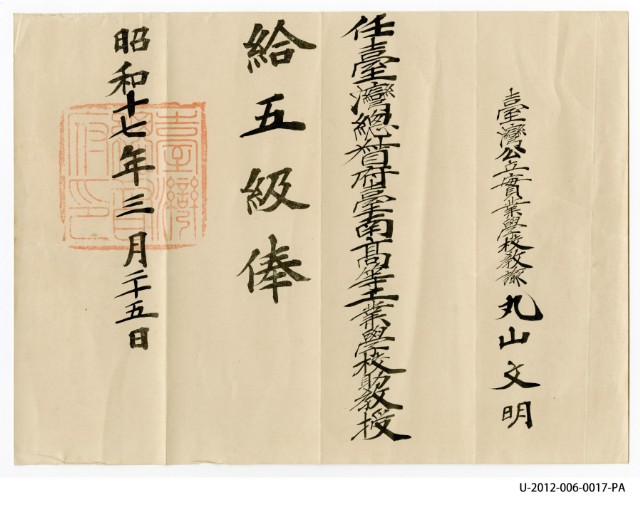 臺灣公立實業學校教諭 丸山文明
任臺灣總督府臺南高等工業學校助教授
給五級俸
昭和十七年三月二十五日
臺灣總督府印
U-2012-006-0017-PA